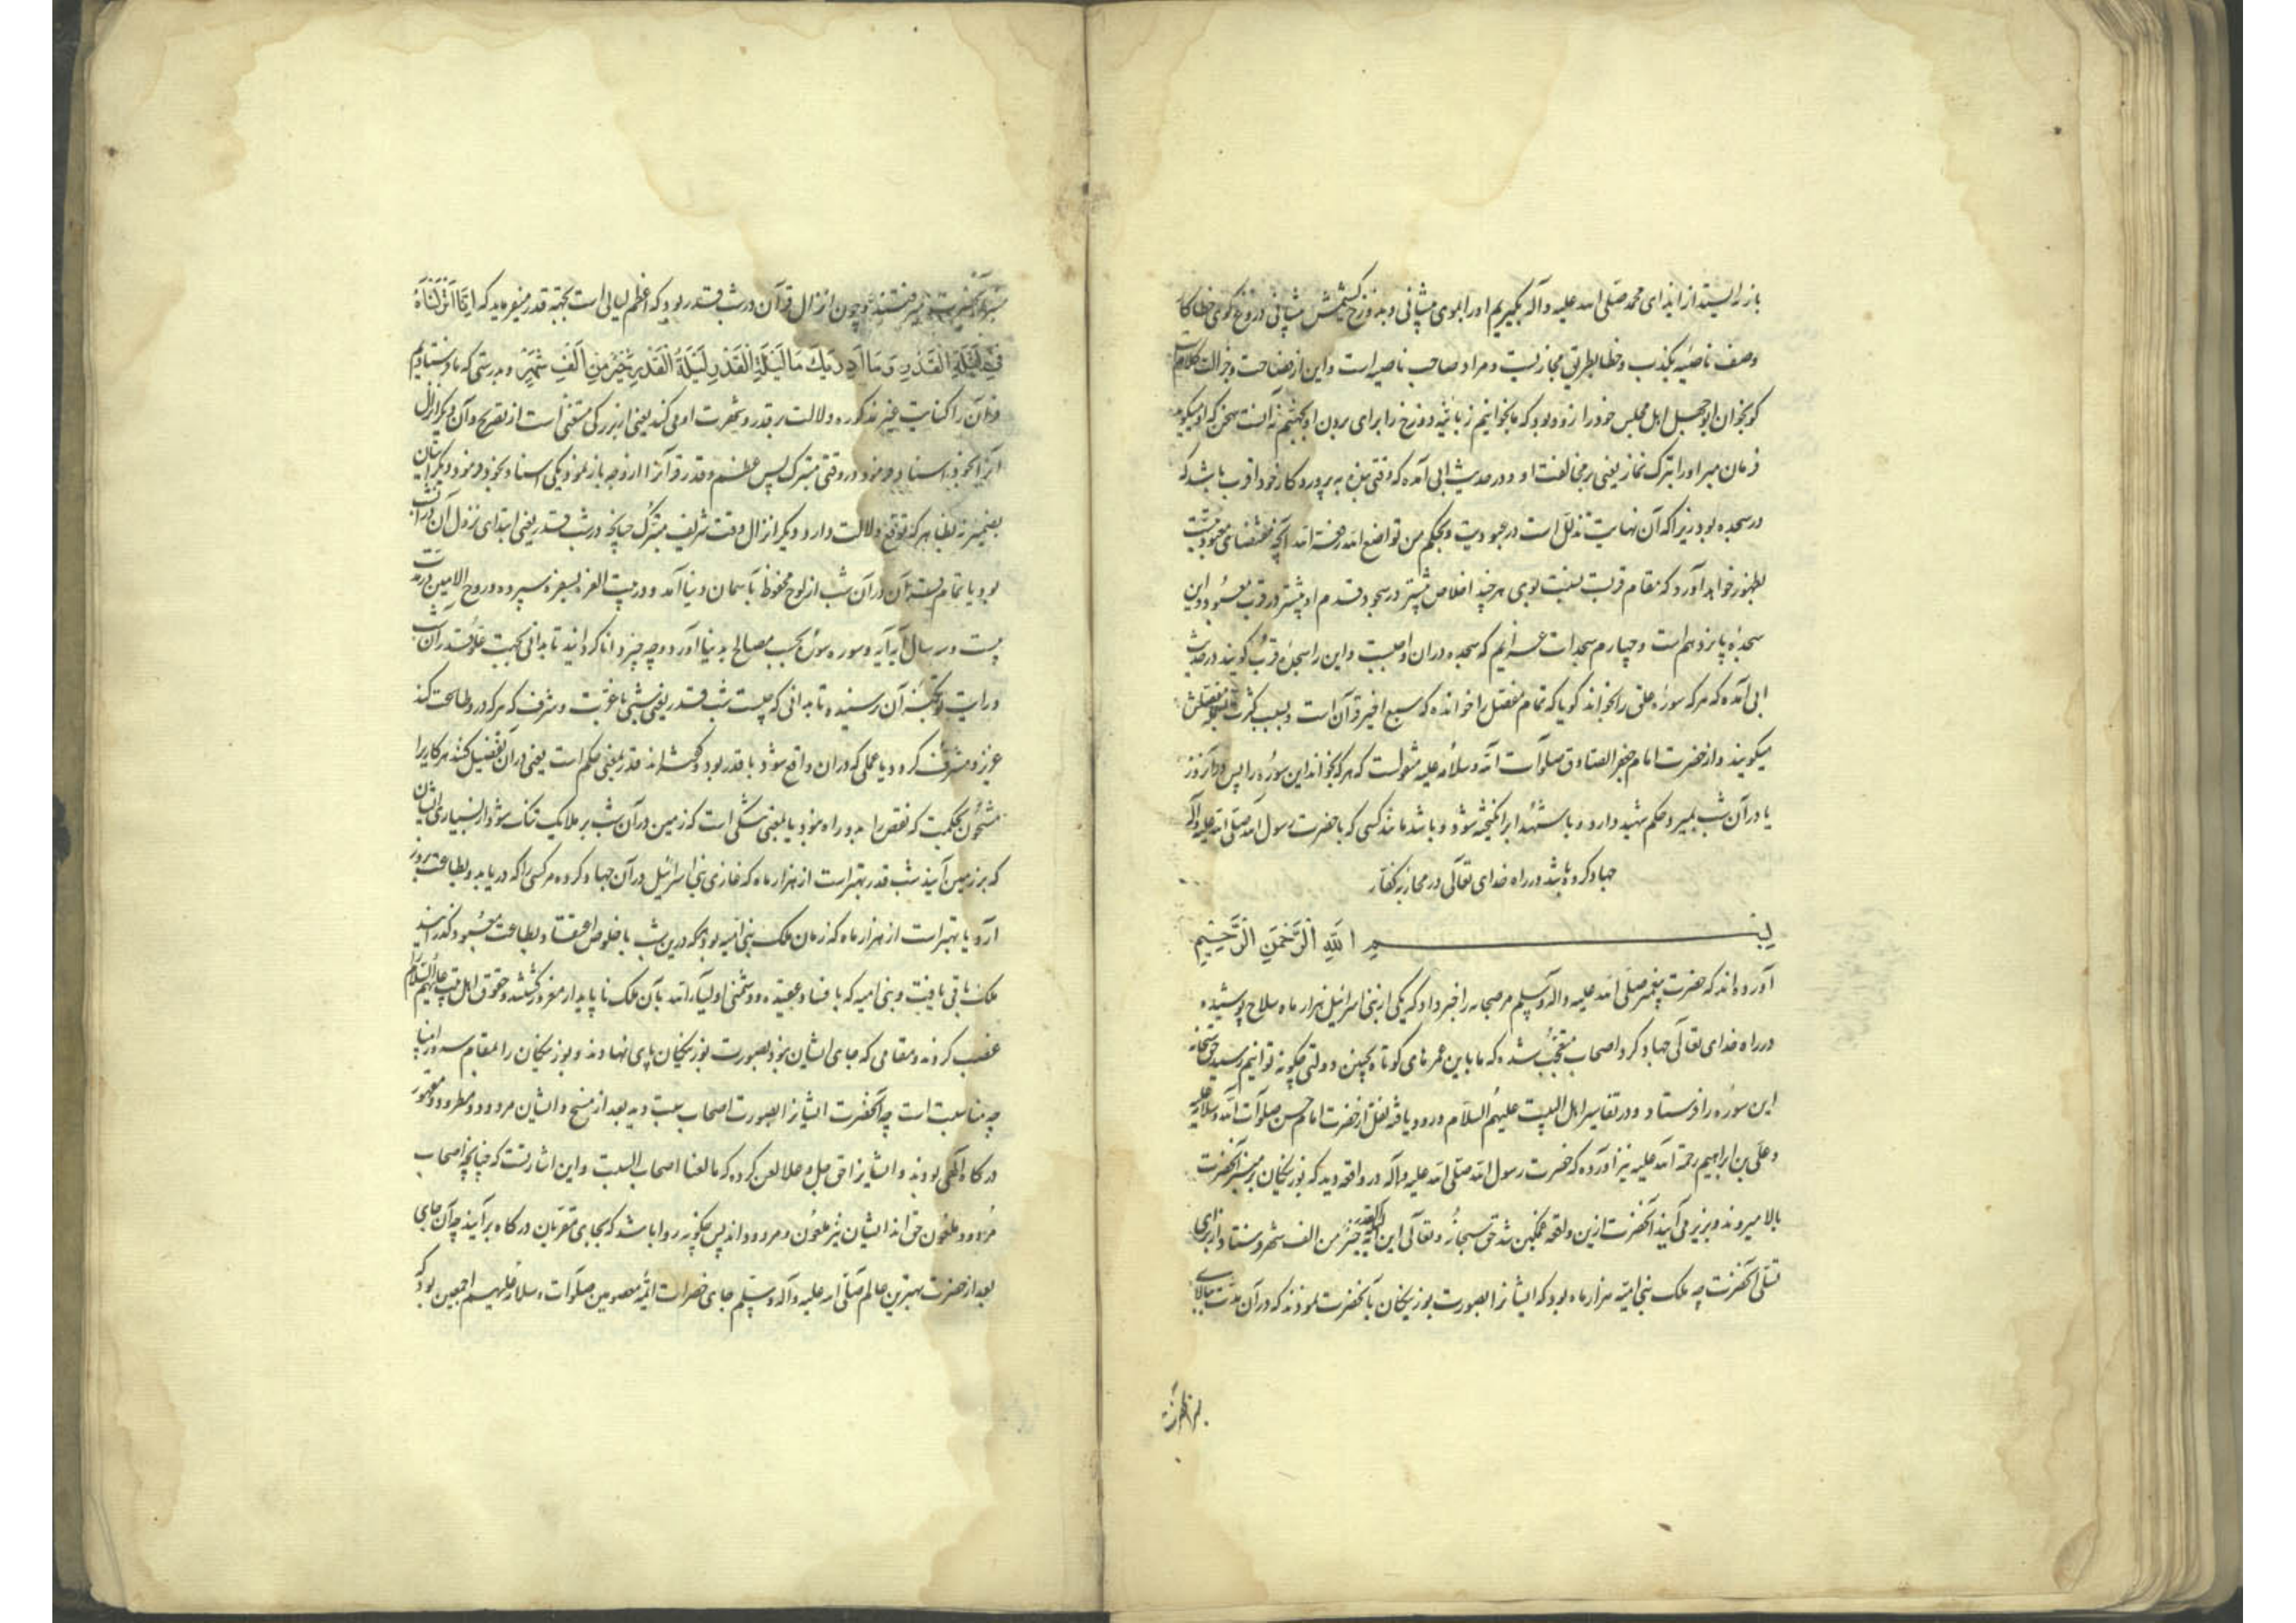 باز نه ایستد از ایذای محمد صلی الله علیه وآله بگیریم او را بموی پیشانی و بدوزخ کشیمش پیشانی دروغ گوی خطا کار
وصف ناصیه بکذب و خطا بطریق مجازیست و مراد صاحب ناصیه است و این از فصاحت و جزالت کلام است
کو بخوان ابوجهل اهل مجلس خود را زود بود که ما بخوانیم زبانیه دوزخ را برای بردن او بجهنم نه آنست سخن که او میگوید
فرمان مبر او را بترک نماز یعنی بر مخالفت او و در حدیث الهی آمده که وقتی بنده به پروردگار خود اقرب باشد که
در سجده بود زیرا که آن نهایت تذلل است در عبودیت و بحکم من تواضع لله رفعه الله آنچه مقتضای عبودیت
بظهور خواهد آورد که مقام قربت نسبت بوی هر چند اخلاص بیشتر در سجود قدم او پیشتر در قرب معبود و این
سجده پانزدهم است و چهارم سجدات عزایم که سجده در آن واجبست و این را سجدهٔ قرب گویند در حدیث
ابی آمده که هر که سورهٔ علق را بخواند گویا که تمام مفصل را خوانده که سبع اخیر قرآن است و بسبب کثرت فصول مفصلش
میگویند و از حضرت امام جعفر الصادق صلوات الله وسلامه علیه منقولست که هر که بخواند این سوره را پس در آن روز
یا در آن شب بمیرد حکم شهید دارد و با شهدا برانگیخته شود و باشد مانند کسی که با حضرت رسول الله صلی الله علیه وآله
جهاد کرده باشد در راه خدای تعالی در محاربه کفار
بسم الله الرحمن الرحیم
آورده‌اند که حضرت پیغمبر صلی الله علیه وآله وسلم مر صحابه را خبر داد که یکی از بنی اسرائیل هزار ماه سلاح پوشیده
در راه خدای تعالی جهاد کرد اصحاب متعجب شده که ما باین عمرهای کوتاه بچنین دولتی چگونه توانیم رسید حق سبحانه
این سوره را فرستاد و در تفاسیر اهل البیت علیهم السلام ورود یافته نقل از حضرت امام حسن صلوات الله وسلامه علیه
و علی بن ابراهیم رحمة الله علیه نیز آورده که حضرت رسول الله صلی الله علیه وآله در واقعه دید که بوزینگان بر منبر آنحضرت
بالا میروند و بزیر می‌آیند آنحضرت ازین واقعه غمگین شد حق سبحانه وتعالی این آیه لیلة القدر خیر من الف شهر فرستاد از برای
تسلی آنحضرت چه ملک بنی امیه هزار ماه بود که ایشانرا بصورت بوزینگان بآنحضرت نمودند که در آن مدت ببالای
منبر آنحضرت میرفتند و چون انزال قرآن در شب قدر بود که اعظم لیالی است بجهة قدر میفرماید که اِنَّا اَنْزَلْنَاهُ
فِی لَیْلَةِ الْقَدْرِ وَمَا اَدْرٰیكَ مَا لَیْلَةُ الْقَدْرِ لَیْلَةُ الْقَدْرِ خَیْرٌ مِنْ اَلْفِ شَهْرٍ بدرستی که ما فرستادیم
قرآن را کنایت غیر مذکوره دلالت بر قدر و شهرت او می‌کند یعنی از بزرگی مستغنی است از تصریح و آن دیگر انزال
آنرا بخود اسناد فرمود در وقتی متبرک پس عظم و قدر قرآنرا از وجه باز نمود یکی اسناد بخود فرمود دیگر اتیان
بضمیر نه بظاهر که توقیع دلالت دارد و دیگر انزال وقت شریف متبرک چنانچه در شب قدر یعنی ابتدای نزول آن در آن شب
بود یا تمام قرآن در آن شب از لوح محفوظ بآسمان دنیا آمد و در بیت العزه بسفره سپرده و روح الامین در مدت
بیست و سه سال آیه آیه و سوره سوره بحسب مصالح بدنیا آورد و چه چیز دانا گردانید تا بدانی بجهت علو قدر آن شب
درایت تو بکنه آن نرسیده تا بدانی که چیست شب قدر یعنی شبی با عزت و شرف که هر که در و طاعت کند
عزیز و مشرف گردد یا عملی که در آن واقع شود با قدر بود و گفته‌اند قدر بمعنی حکم است یعنی در آن تفصیل کنند هر کاری را
مشحون بحکمت که نقص را بدو راه نبود یا بمعنی تنگی است که زمین در آن شب بر ملائک تنگ شود از بسیاری ایشان
که بر زمین آیند شب قدر بهتر است از هزار ماه که غازی بنی اسرائیل در آن جهاد کرده مر کسی را که دریابد و بطاعت بروز
آرد یا بهتر است از هزار ماه که زمان ملک بنی امیه بود که درین شب با خلوص اعتقاد بطاعت معبود گذرانید
ملک باقی یافت و بنی امیه که با فساد عقیده و دشمنی اولیاء الله بآن ملک ناپایدار مغرور گشتند و حقوق اهل بیت علیهم السلام را
غصب کردند و مقامی که جای ایشان نبود بصورت بوزینگان پای نهادند و بوزینگان را بمقام سرور انبیا
چه مناسبت است چه آنحضرت ایشانرا بصورت اصحاب سبت دید بعد از مسخ و ایشان مردود و مطرود و مقهور
درگاه الهی بودند و ایشانرا حق جل وعلا لعن کرده که ما لعنا اصحاب السبت و این اشارتست که چنانچه اصحاب
مردود و ملعون حق‌اند ایشان نیز ملعون و مردودند پس چگونه روا باشد که بجای مقربان درگاه برآیند چه آن جای
بعد از حضرت بهترین عالم صلی الله علیه وآله وسلم جای حضرات ائمهٔ معصومین صلوات وسلامه علیهم اجمعین بود که